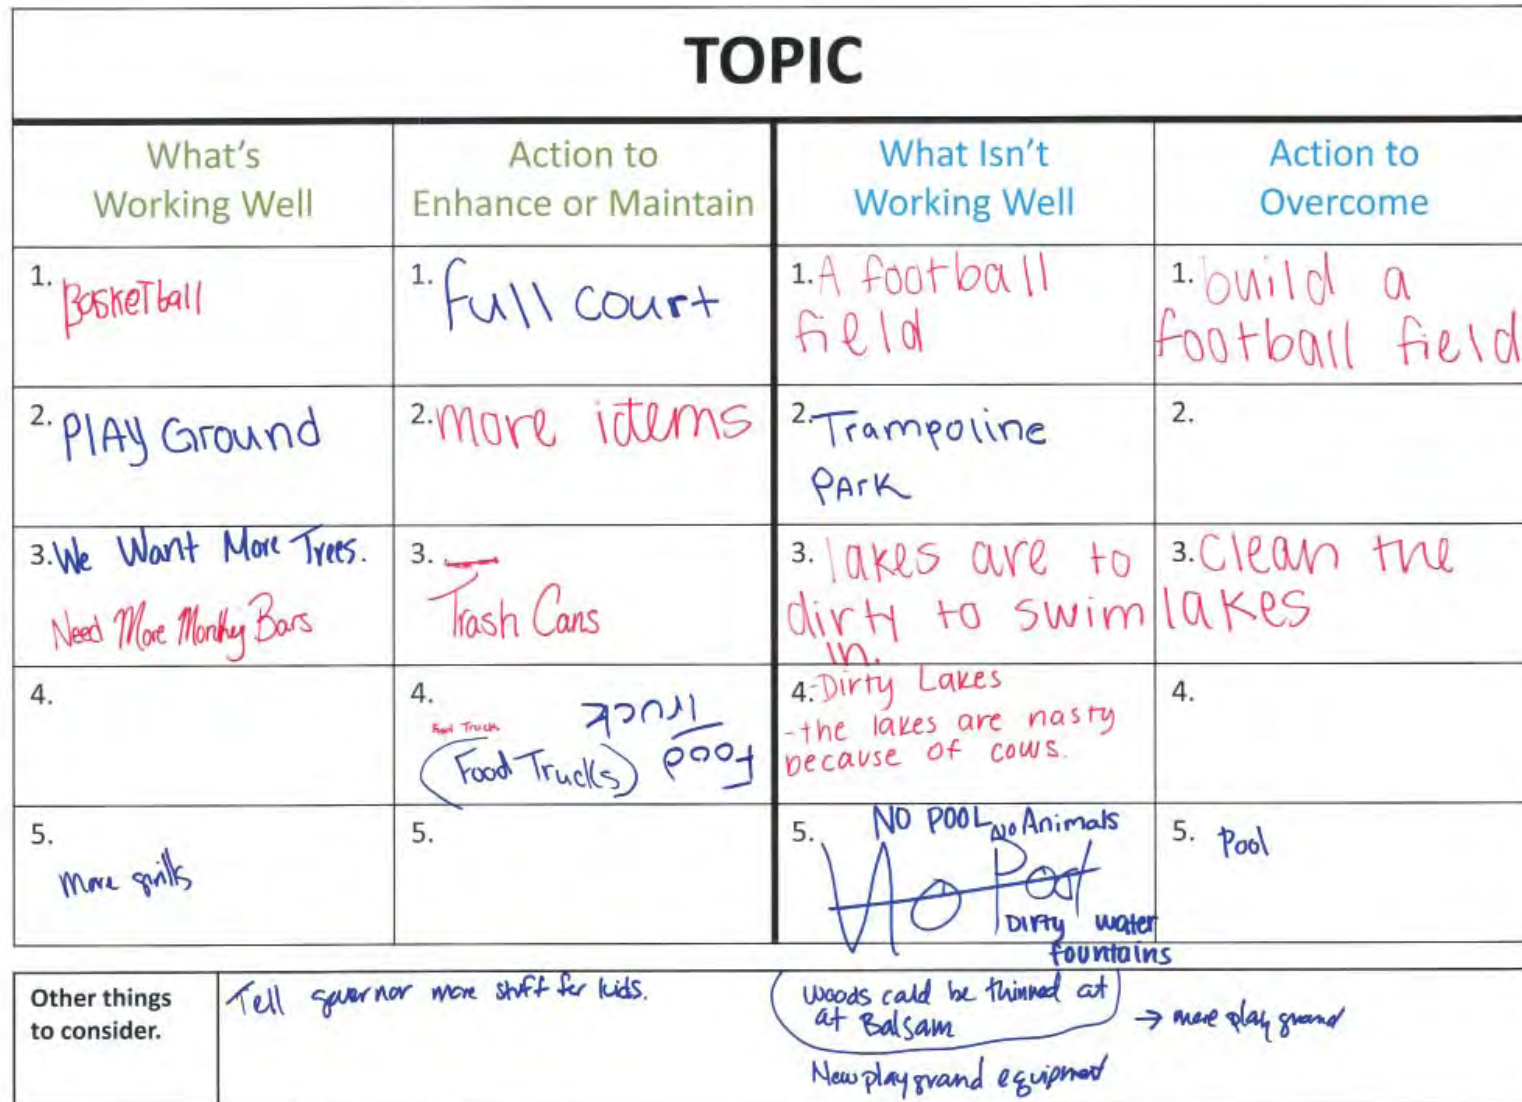 TOPIC
What's
Working Well
Action to
Enhance or Maintain
What Isn't
Working Well
Action to
Overcome
1. BasketBall
1. full court
1. A football
field
1. build a
football field
2. PlAy Ground
2. more idems
2. Trampoline
PArK
2.
3. We Want More Trees.
Need More Monkey Bars
3.
Trash Cans
3. lakes are to
dirty to swim
in.
3. Clean the
lakes
4.
4.
Food Truck
(Food Trucks)
Food
Truck
4. -Dirty Lakes
-the lakes are nasty
because of cows.
4.
5.
more grills
5.
5. NO POOL NO Animals
No Pool
Dirty water
fountains
5. Pool
Other things
to consider.
Tell governor more stuff for kids.
woods could be thinned at
at Balsam
→ more play ground
New playground equipment